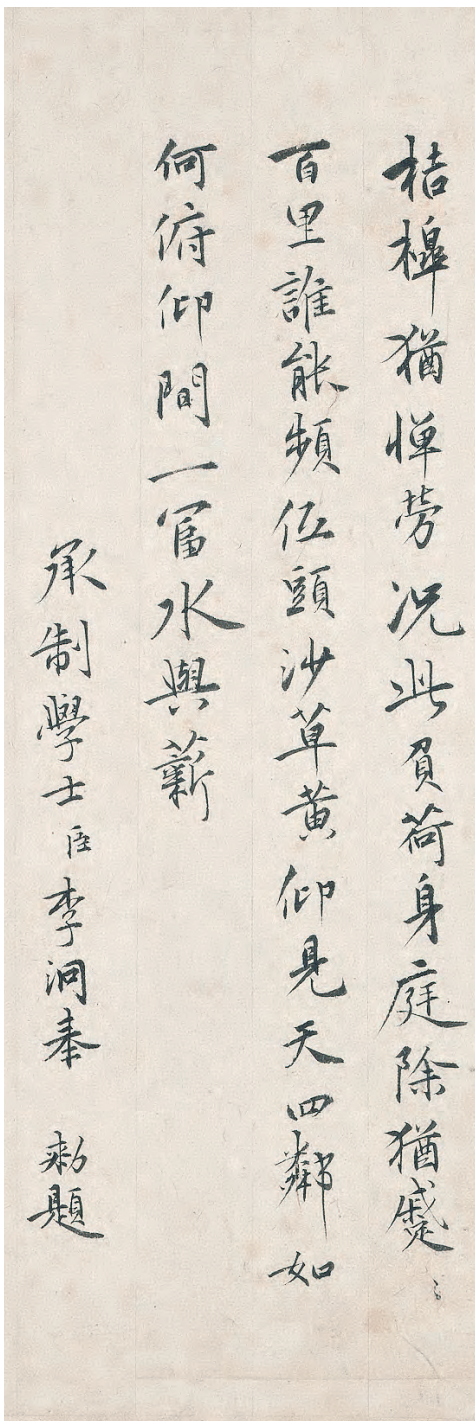 桔槔猶惮劳况此負荷身庭除猶蹙〻
百里誰能頻低頭沙草黄仰見天四鄰如
何俯仰間一富水與薪
承制學士臣李泂奉 勑題